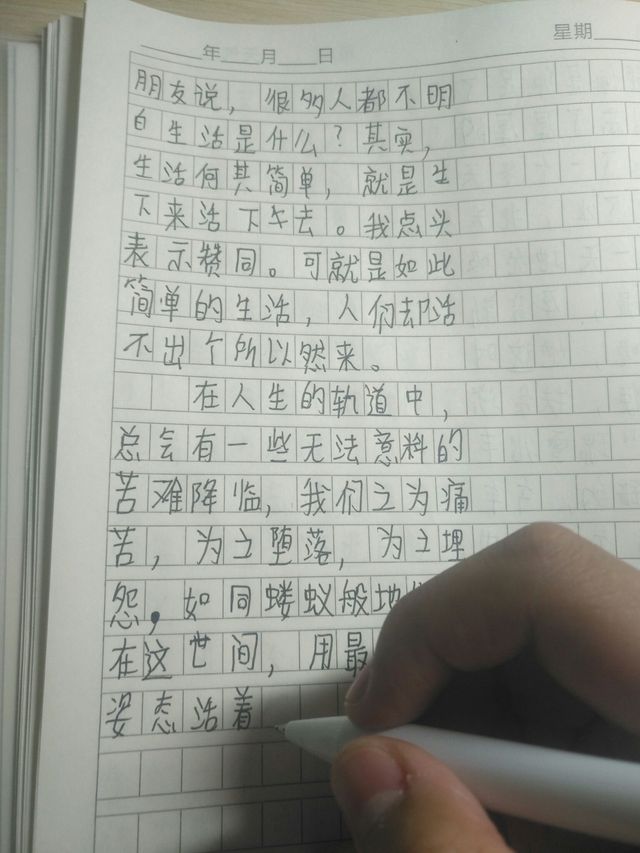 年 月 日 星期
朋友说，很多人都不明
白生活是什么？其实，
生活何其简单，就是生
下来活下去。我点头
表示赞同。可就是如此
简单的生活，人们却活
不出个所以然来。
在人生的轨道中，
总会有一些无法意料的
苦难降临，我们立为痛
苦，为立堕落，为立埋
怨，如同蝼蚁般地
在这世间，用最
姿态活着